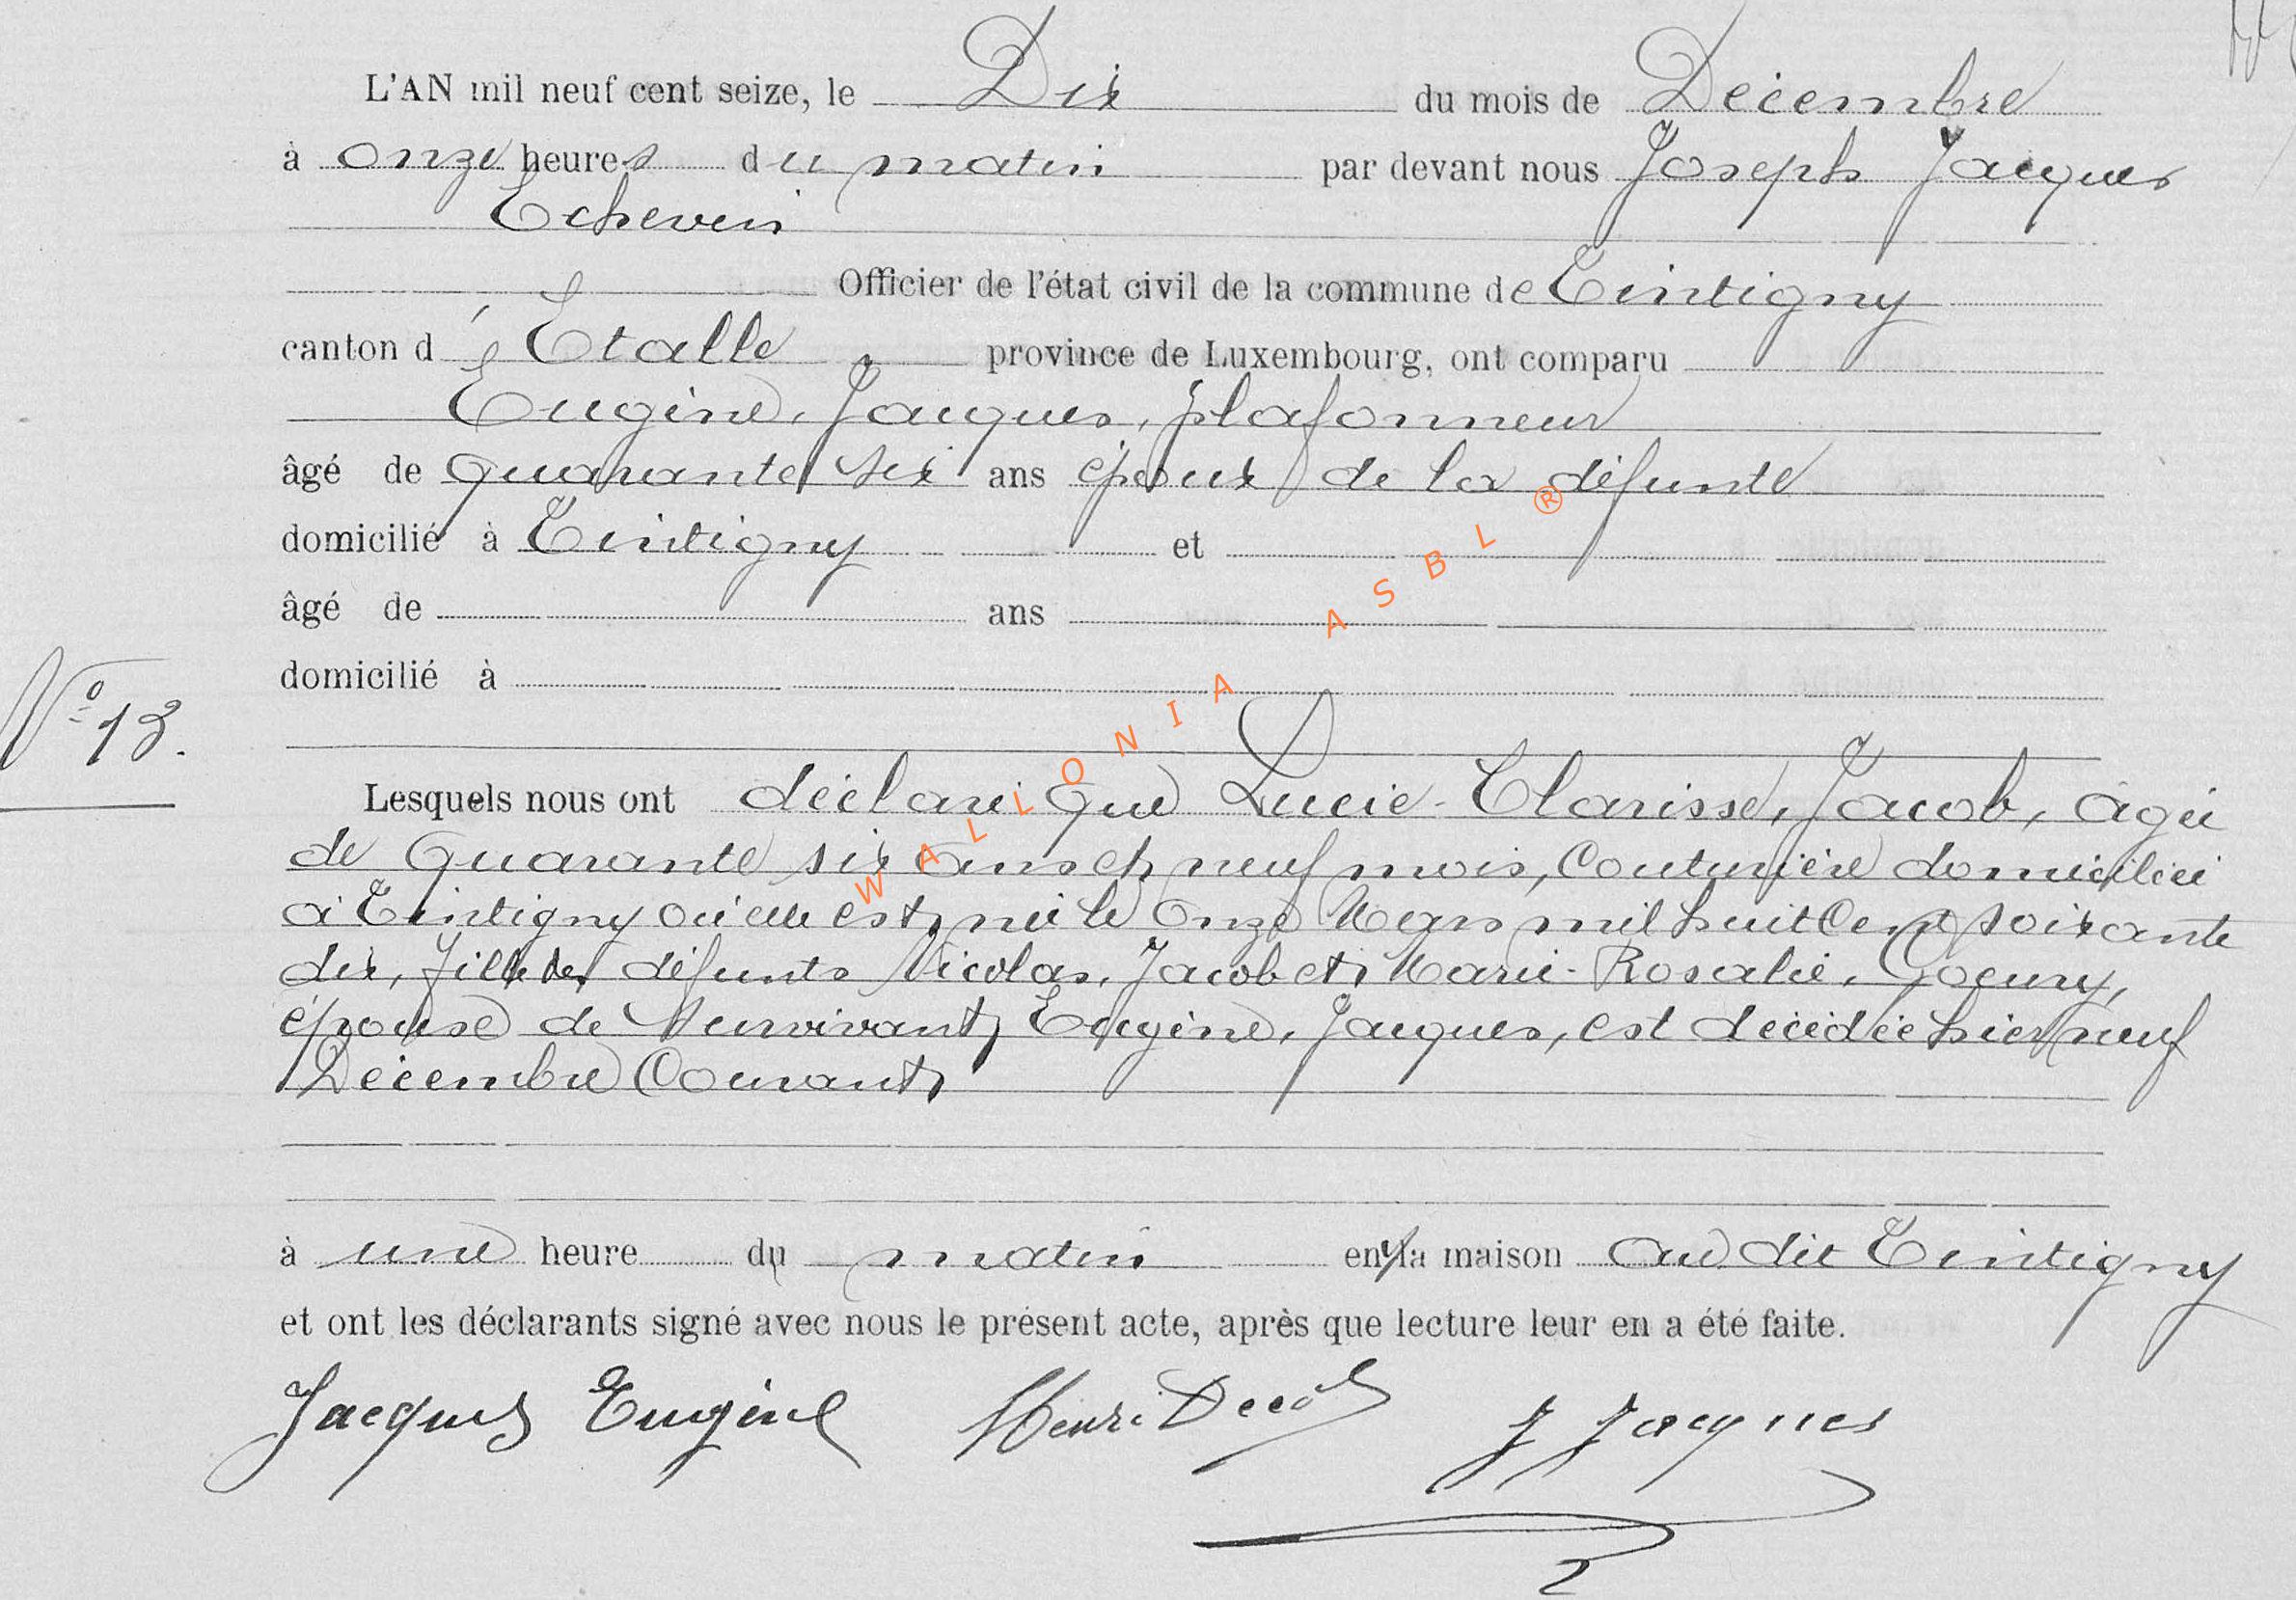 L'AN mil neuf cent seize, le Dix du mois de Décembre
à onze heures du matin par devant nous Joseph Jacques
Echevin
Officier de l'état civil de la commune de Tintigny
canton d'Etalle, province de Luxembourg, ont comparu
Eugène, Jacques, plafonneur
âgé de quarante six ans époux de la défunte
domicilié à Tintigny et
âgé de ans
domicilié à
N° 13.
Lesquels nous ont déclaré que Lucie-Clarisse, Jacob, âgée
de quarante six ans et neuf mois, couturière domiciliée
à Tintigny où elle est née le onze Mars mil huit cent soixante
dix, fille des défunts Nicolas, Jacob et Marie-Rosalie, Goeury,
épouse de survivant Eugène, Jacques, est décédée hier neuf
Décembre courant
à une heure du matin en la maison au dit Tintigny
et ont les déclarants signé avec nous le présent acte, après que lecture leur en a été faite.
Jacques Eugène Henri J Jacques
WALLONIA ASBL ®